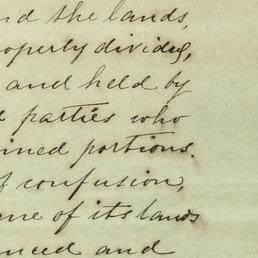 nd the lands,
roperly divided,
and held by
d parties who
ined portions.
f confusion,
ene of its lands
nced and